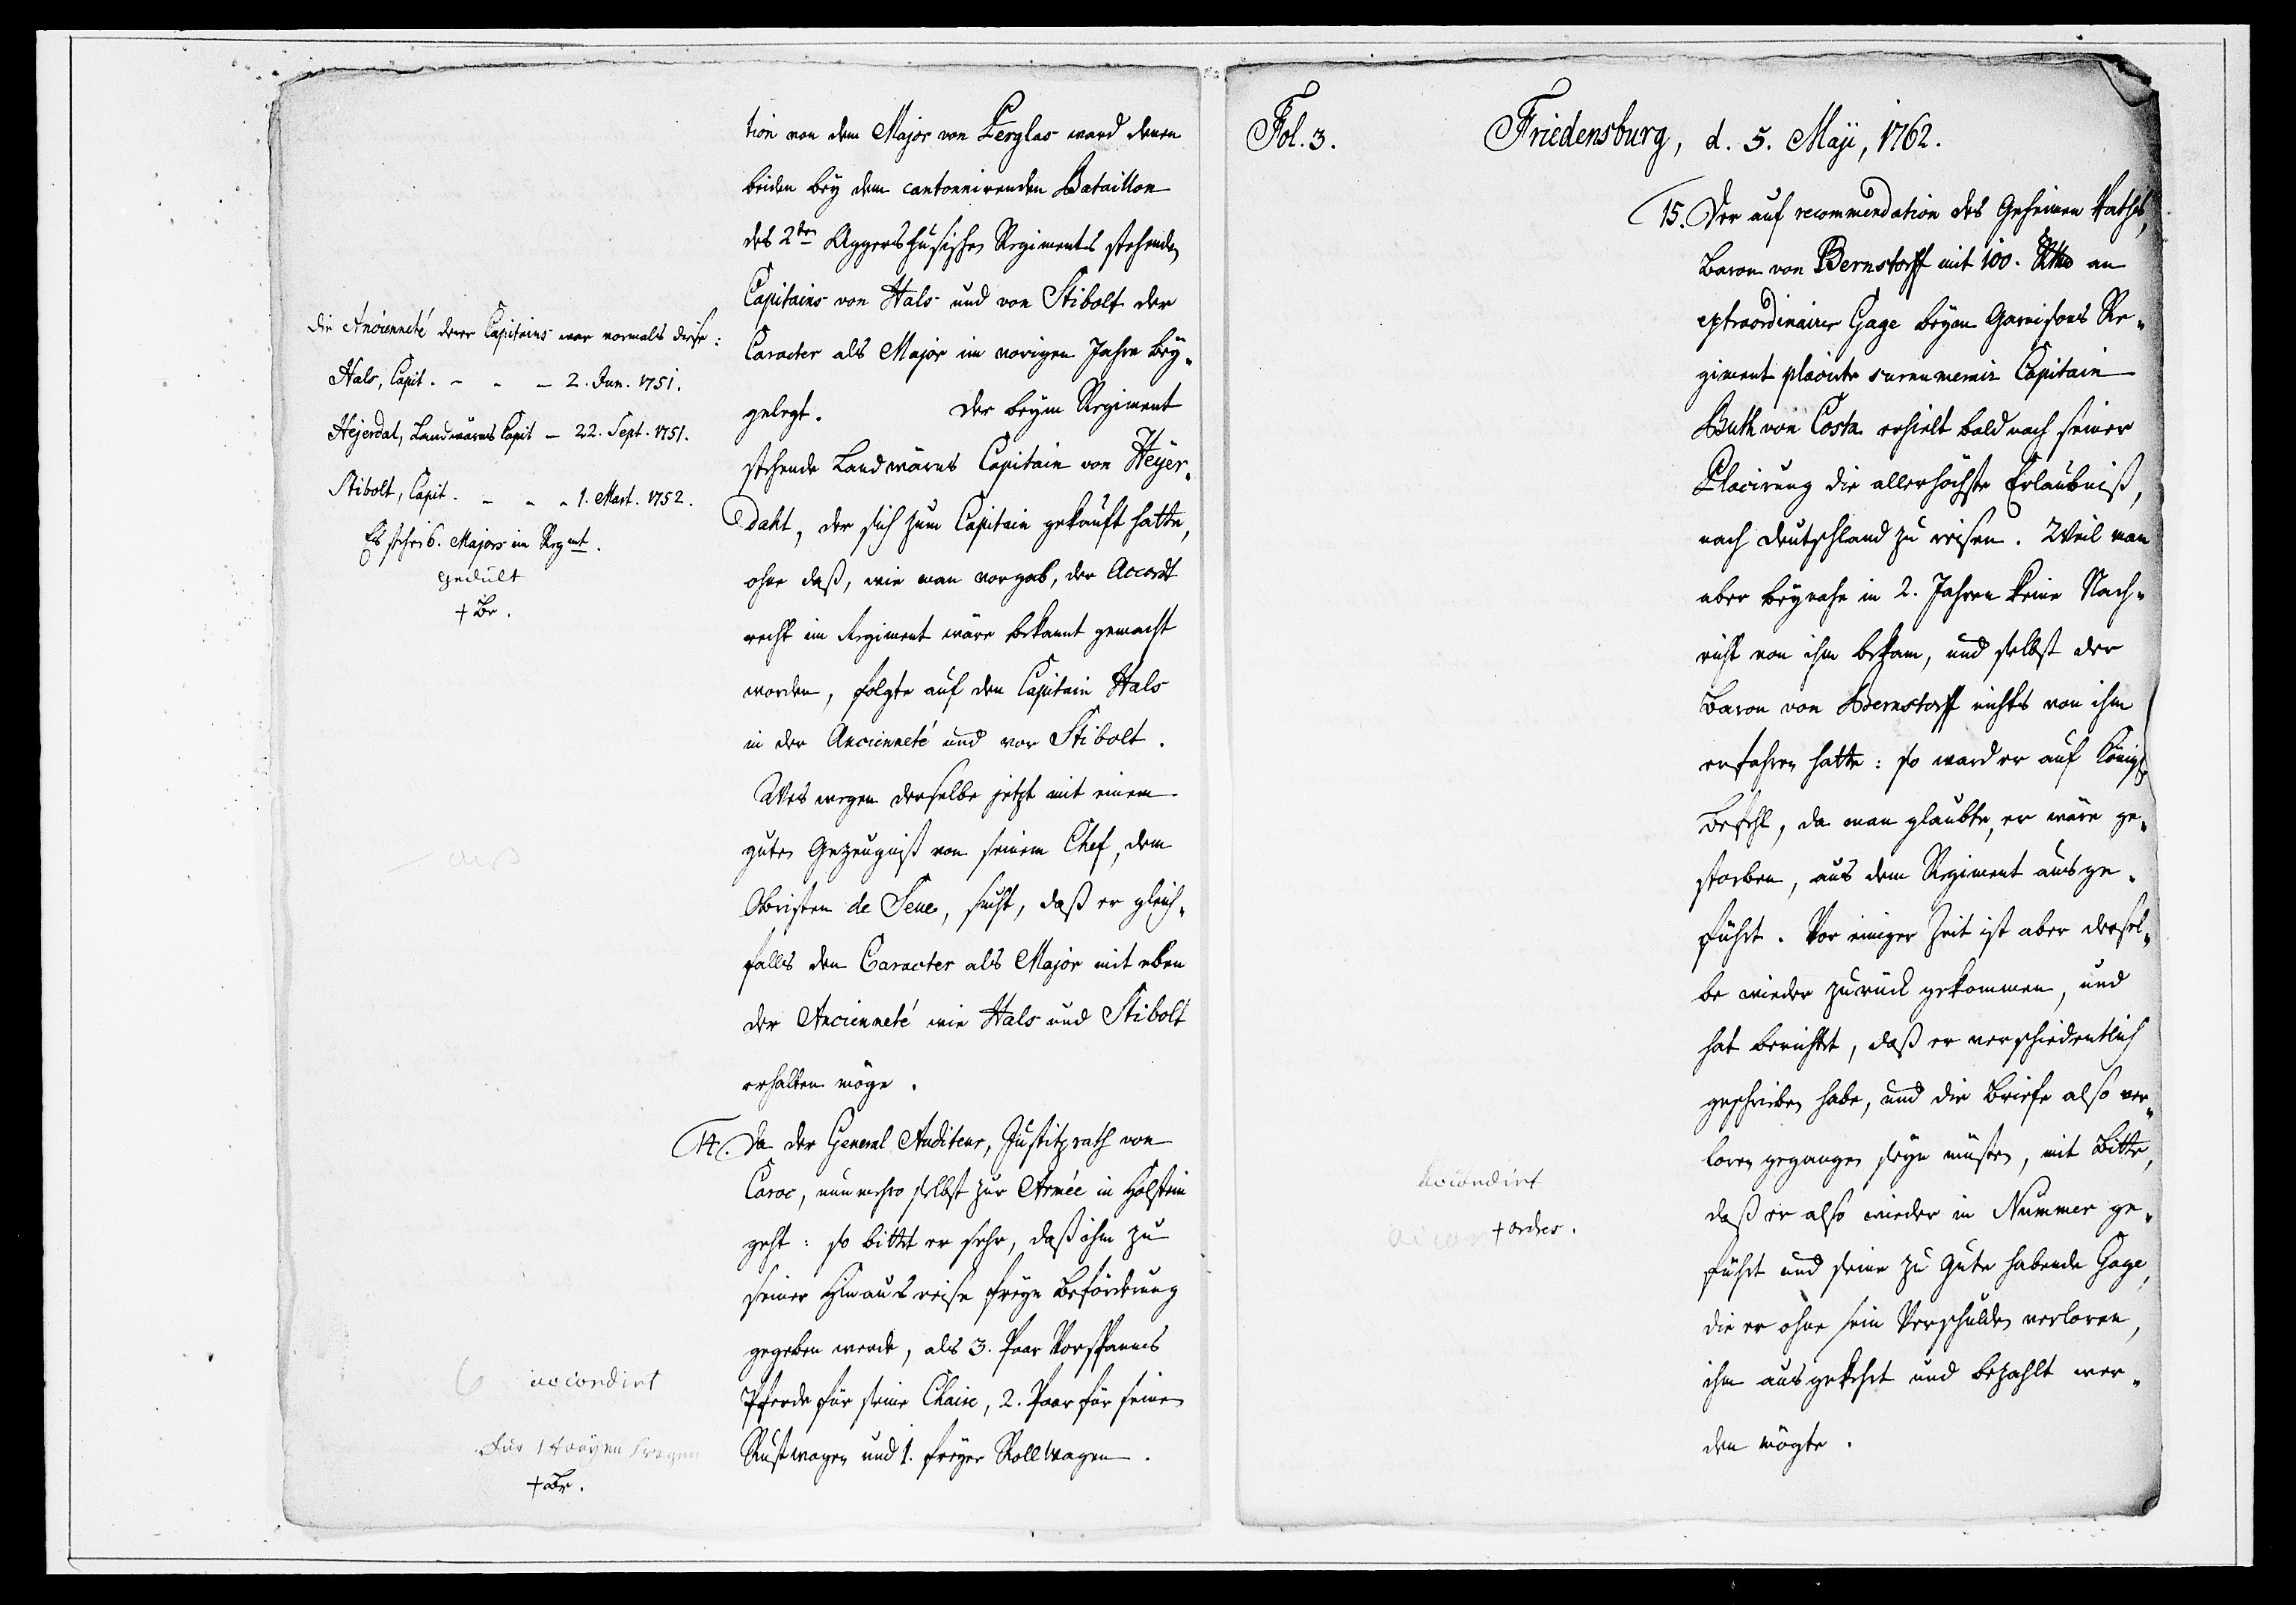 tion von dem Major von Perglas ward denen
beiden bey dem cantonnirenden Bataillon
des 2ten Aggershusischen Regiments stehenden
Capitains von Hals und von Stibolt der
Caracter als Major im vorigen Jahre bey-
gelegt. Der beym Regiment
stehende Landwärns Capitain von Heyer-
dahl, der sich zum Capitain gekauft hatte,
ohne daß, wie man vorgab, der Accordt
recht im Regiment wäre bekannt gemacht
worden, folgte auf den Capitain Hals
in der Ancienneté und vor Stibolt.
Weswegen derselbe jetzt mit einem
guten Gezeugniß von seinem Chef, dem
Obristen de Seue, sucht, daß er gleich-
falls den Caracter als Major mit eben
der Ancienneté wie Hals und Stibolt
erhalten möge.
Die Ancienneté derer Capitains war vormals diese:
Hals, Capit. - - - 2. Jun. 1751.
Hejerdal, Landwärns Capit - 22. Sept. 1751.
Stibolt, Capit. - - - 1. Mart. 1752.
Es stehn 6. Majors im Regmt.
gedult
+ Br.
14. Da der General Auditeur, Justitzrath von
Caroc, nunmehro selbst zur Armée in Holstein
geht: so bittet er sehr, daß ihm zu
seiner Hinausreise freye Beförderung
gegeben werde, als 3. Paar Vorspanns
Pferde für seine Chaise, 2. Paar für seinen
Rustwagen und 1. freyer Rollwagen.
accordirt
+ Br.
Fol. 3.
Friedensburg, d. 5. Maji, 1762.
15. Der auf recommendation des Geheimen Raths,
Baron von Bernstorff mit 100. Rthr an
extraordinairer Gage beym Garnisons Re-
giment placirte surnumerair Capitain
Buth von Costa erhielt bald nach seiner
Placirung die allerhöchste Erlaubniß,
nach Deutschland zu reisen. Weil man
aber beynahe in 2. Jahren keine Nach-
richt von ihm bekam, und selbst der
Baron von Bernstorff nichts von ihm
erfahren hatte: so ward er auf Königl.
Befehl, da man glaubte, er wäre ge-
storben, aus dem Regiment ausge-
führt. Vor einiger Zeit ist aber dersel-
be wieder zurück gekommen, und
hat berichtet, daß er verschiedentlich
geschrieben habe, und die Briefe also ver-
loren gegangen seyn müsten, mit Bitte,
daß er also wieder in Nummer ge-
führt und seine zu gute habende Gage,
die er ohne sein Verschulden verloren,
ihm ausgekehrt und bezahlt wer-
den mögte.
accordirt
+ ordres.